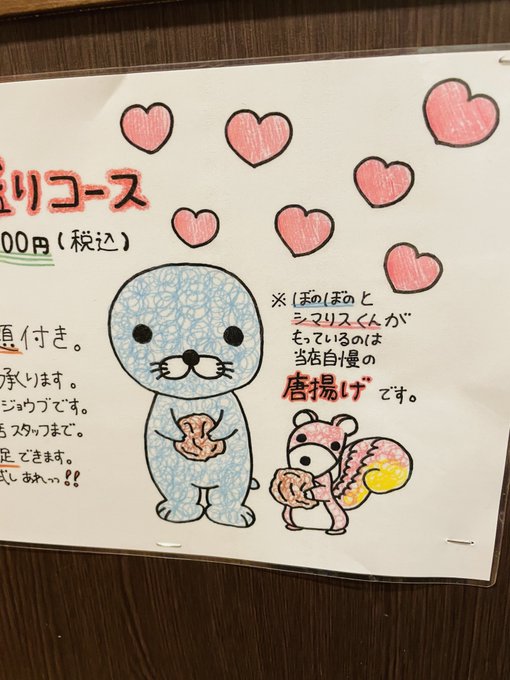 りコース
00円(税込)
付き。
承ります。
ジョウブです。
スタッフまで。
足できます。
試しあれっっ!!
※ぼのぼのと
シマリスくんが
もっているのは
当店自慢の
唐揚げです。